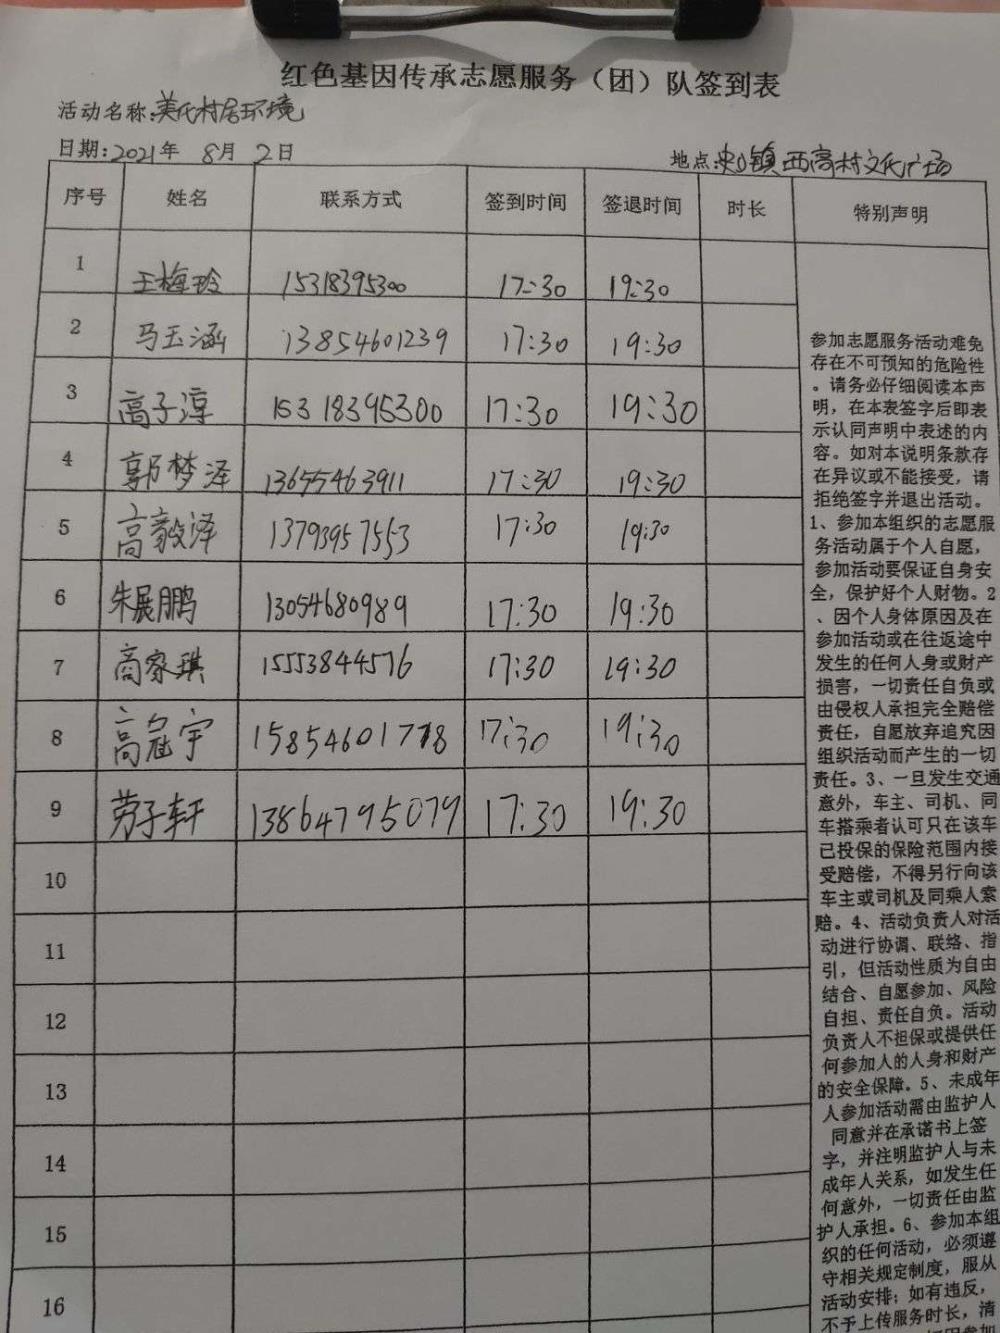 红色基因传承志愿服务（团）队签到表
活动名称:美化村居环境
日期:2021年 8月 2日 地点:史口镇西高村文化广场
序号 姓名 联系方式 签到时间 签退时间 时长 特别声明
1 王梅玲 15318395300 17:30 19:30
2 马玉涵 13854601239 17:30 19:30
3 高子淳 15318395300 17:30 19:30
4 郭梦泽 13655463911 17:30 19:30
5 高毅泽 13793957553 17:30 19:30
6 朱展鹏 13054680989 17:30 19:30
7 高家琪 15553844576 17:30 19:30
8 高冠宇 15854601778 17:30 19:30
9 劳子轩 13864795079 17:30 19:30
10
11
12
13
14
15
16
参加志愿服务活动难免
存在不可预知的危险性
。请务必仔细阅读本声
明，在本表签字后即表
示认同声明中表述的内
容。如对本说明条款存
在异议或不能接受，请
拒绝签字并退出活动。
1、参加本组织的志愿服
务活动属于个人自愿，
参加活动要保证自身安
全，保护好个人财物。2
、因个人身体原因及在
参加活动或在往返途中
发生的任何人身或财产
损害，一切责任自负或
由侵权人承担完全赔偿
责任，自愿放弃追究因
组织活动而产生的一切
责任。3、一旦发生交通
意外，车主、司机、同
车搭乘者认可只在该车
已投保的保险范围内接
受赔偿，不得另行向该
车主或司机及同乘人索
赔。4、活动负责人对活
动进行协调、联络、指
引，但活动性质为自由
结合、自愿参加、风险
自担、责任自负。活动
负责人不担保或提供任
何参加人的人身和财产
的安全保障。5、未成年
人参加活动需由监护人
同意并在承诺书上签
字，并注明监护人与未
成年人关系，如发生任
何意外，一切责任由监
护人承担。6、参加本组
织的任何活动，必须遵
守相关规定制度，服从
活动安排；如有违反，
不予上传服务时长，清